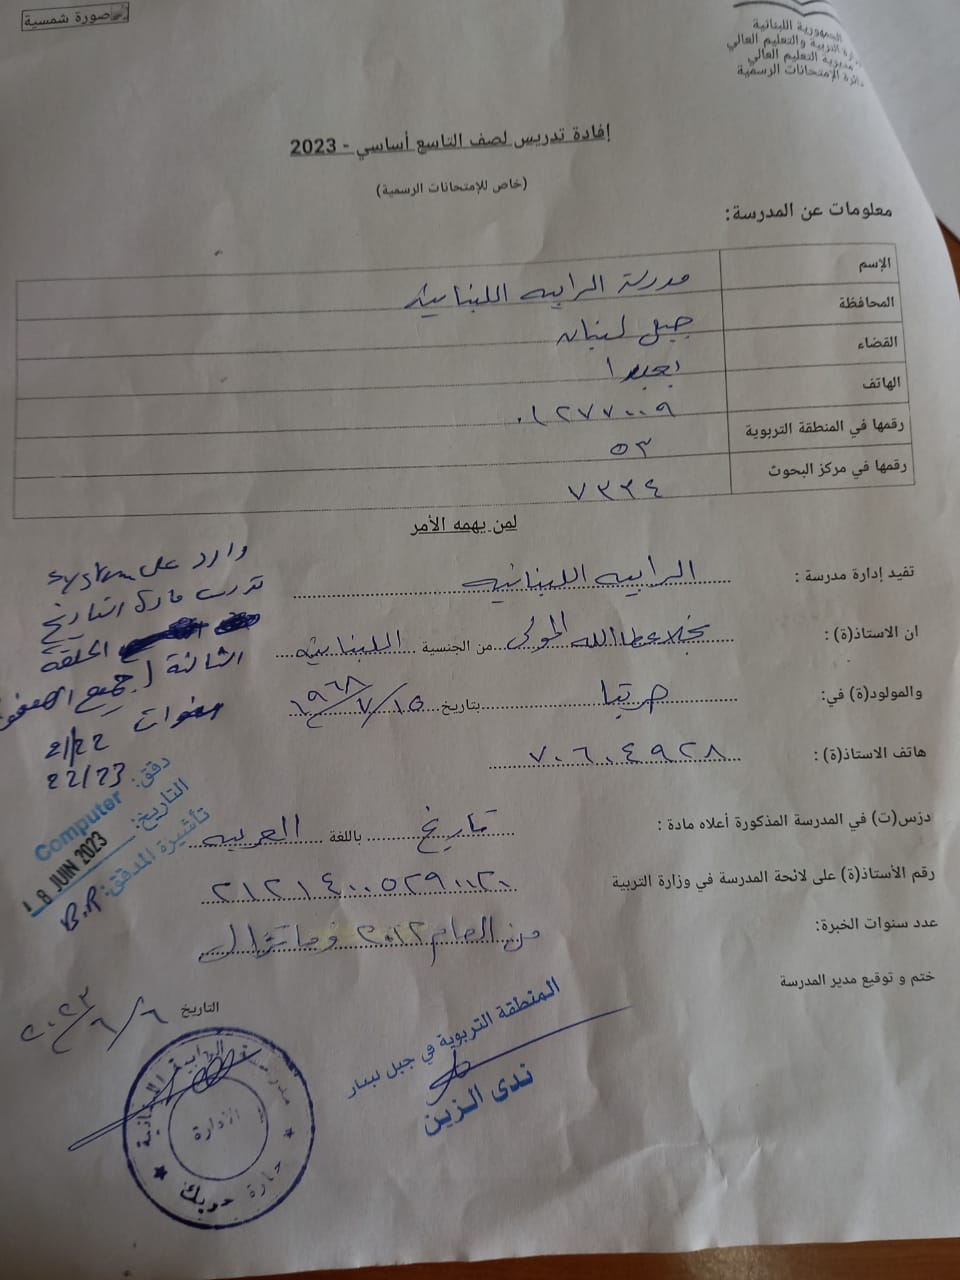 صورة شمسية
الجمهورية اللبنانية
وزارة التربية والتعليم العالي
مديرية التعليم العالي
دائرة الإمتحانات الرسمية
إفادة تدريس لصف التاسع أساسي - 2023
(خاص للإمتحانات الرسمية)
معلومات عن المدرسة:
الإسم مدرسة الرابيه اللبنانية
المحافظة جبل لبنان
القضاء بعبدا
الهاتف ٠١٢٧٧٠٠٩
رقمها في المنطقة التربوية ٥٣
رقمها في مركز البحوث ٧٣٣٤
لمن يهمه الأمر
تفيد إدارة مدرسة : الرابيه اللبنانيه
ان الاستاذ(ة) : نجلا عطاالله المولى من الجنسية اللبنانية
والمولود(ة) في: حربتا بتاريخ ١٥/٧/١٩٦٨
هاتف الاستاذ(ة) : ٧٠٦٠٤٩٢٨
درّس(ت) في المدرسة المذكورة أعلاه مادة : تاريخ باللغة العربيه
رقم الأستاذ(ة) على لائحة المدرسة في وزارة التربية ٢١٢١٤٠٠٥٢٩٠١٢٠
عدد سنوات الخبرة: من العام ٢٠١٢ وما تزال
ختم و توقيع مدير المدرسة
التاريخ ٦/٦/٢٠٢٣
وارد على system
تدرس مادة التاريخ
الحلقة
الثالثة (جميع الصفوف
سنوات
21/22
22/23
دقق: Computer
التاريخ: 8 JUIN 2023
تأشيرة المدقق: B.R
المنطقة التربوية في جبل لبنان
ندى الزين
مدرسة الرابية اللبنانية
الادارة
حارة حريك